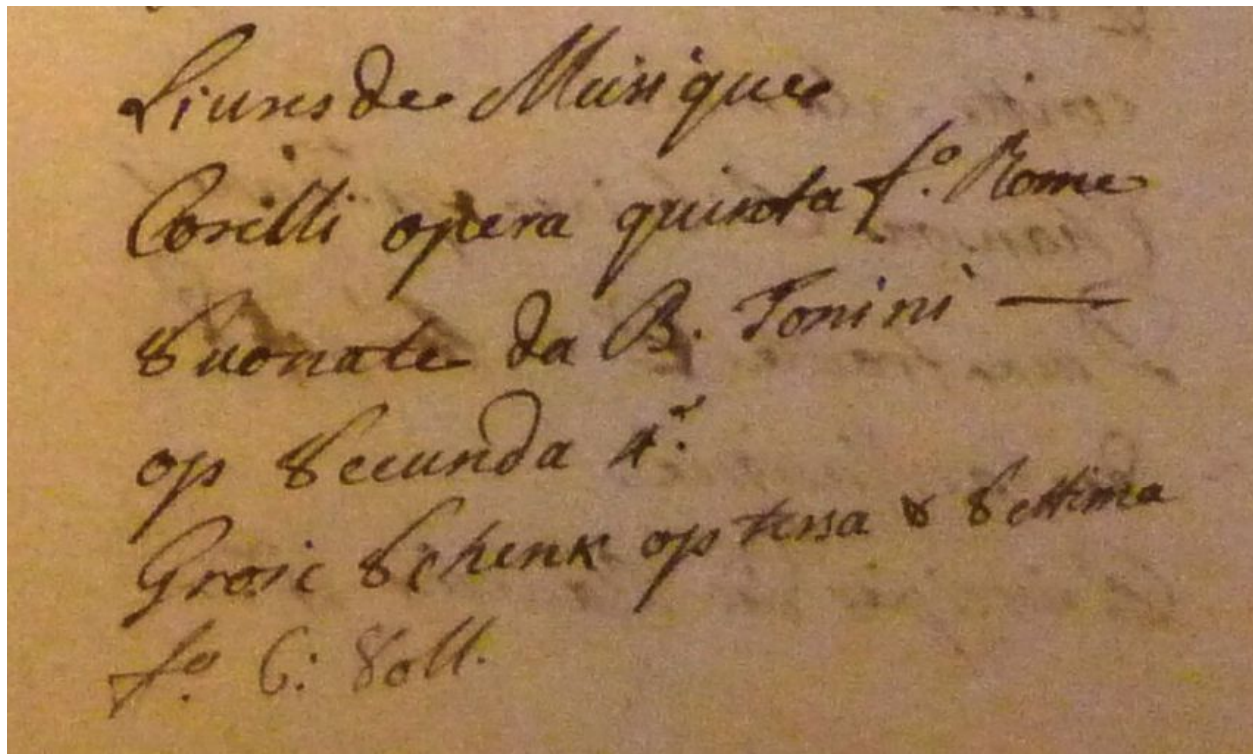 Liures de Musique
Corelli opera quinta f.º Rome
Suonate da B. Tonini —
op Secunda 4.º
Schenk op tersa & Settima
f.º 6: Voll.